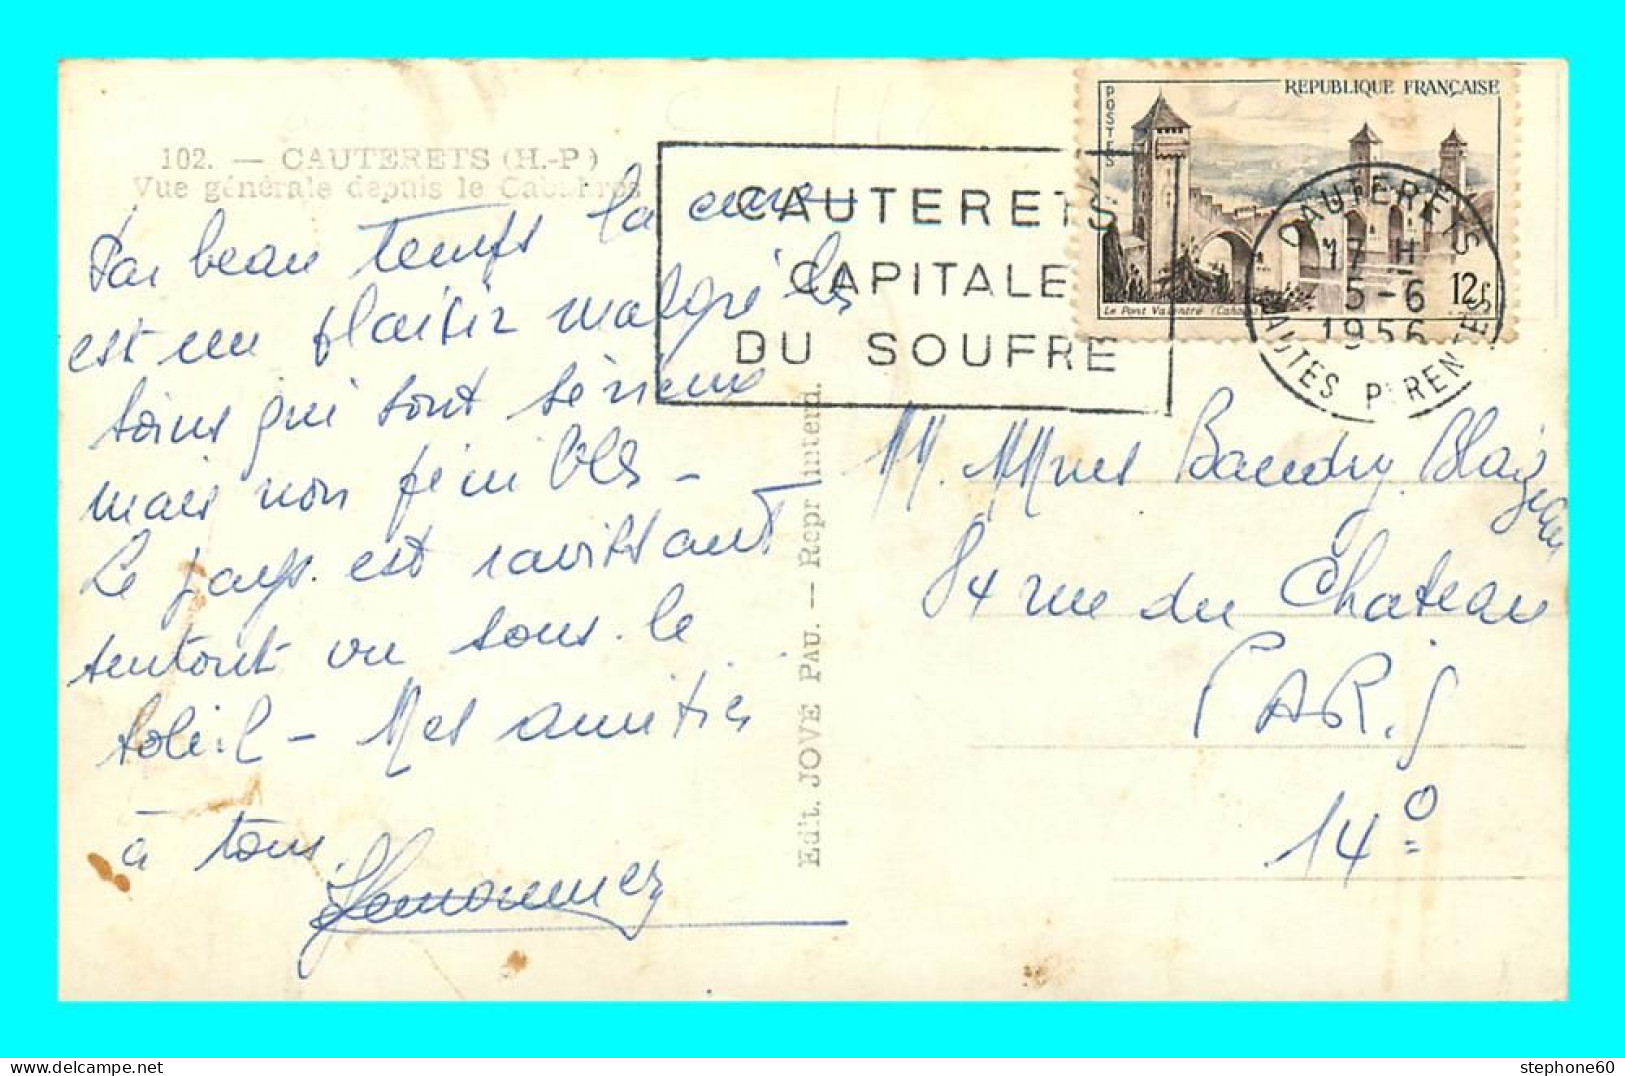 102. — CAUTERETS (H.-P)
Vue générale depuis le Cabaliros
Par beau temps la cure
est un plaisir malgré les
soins qui sont sérieux
mais non pénibles -
Le pays est ravissant
surtout vu sous le
soleil - Mes amitiés
à tous.
Edit. JOVÉ PAU. — Repr. interd.
CAUTERETS
CAPITALE
DU SOUFRE
REPUBLIQUE FRANÇAISE
POSTES
Le Pont Valentré (Cahors)
12f
CAUTERETS
17 H
5-6
1956
HAUTES PYRENEES
MM. Mmes Baudry Blaizeau
84 rue du Chateau
PARIS
14°
stephone60